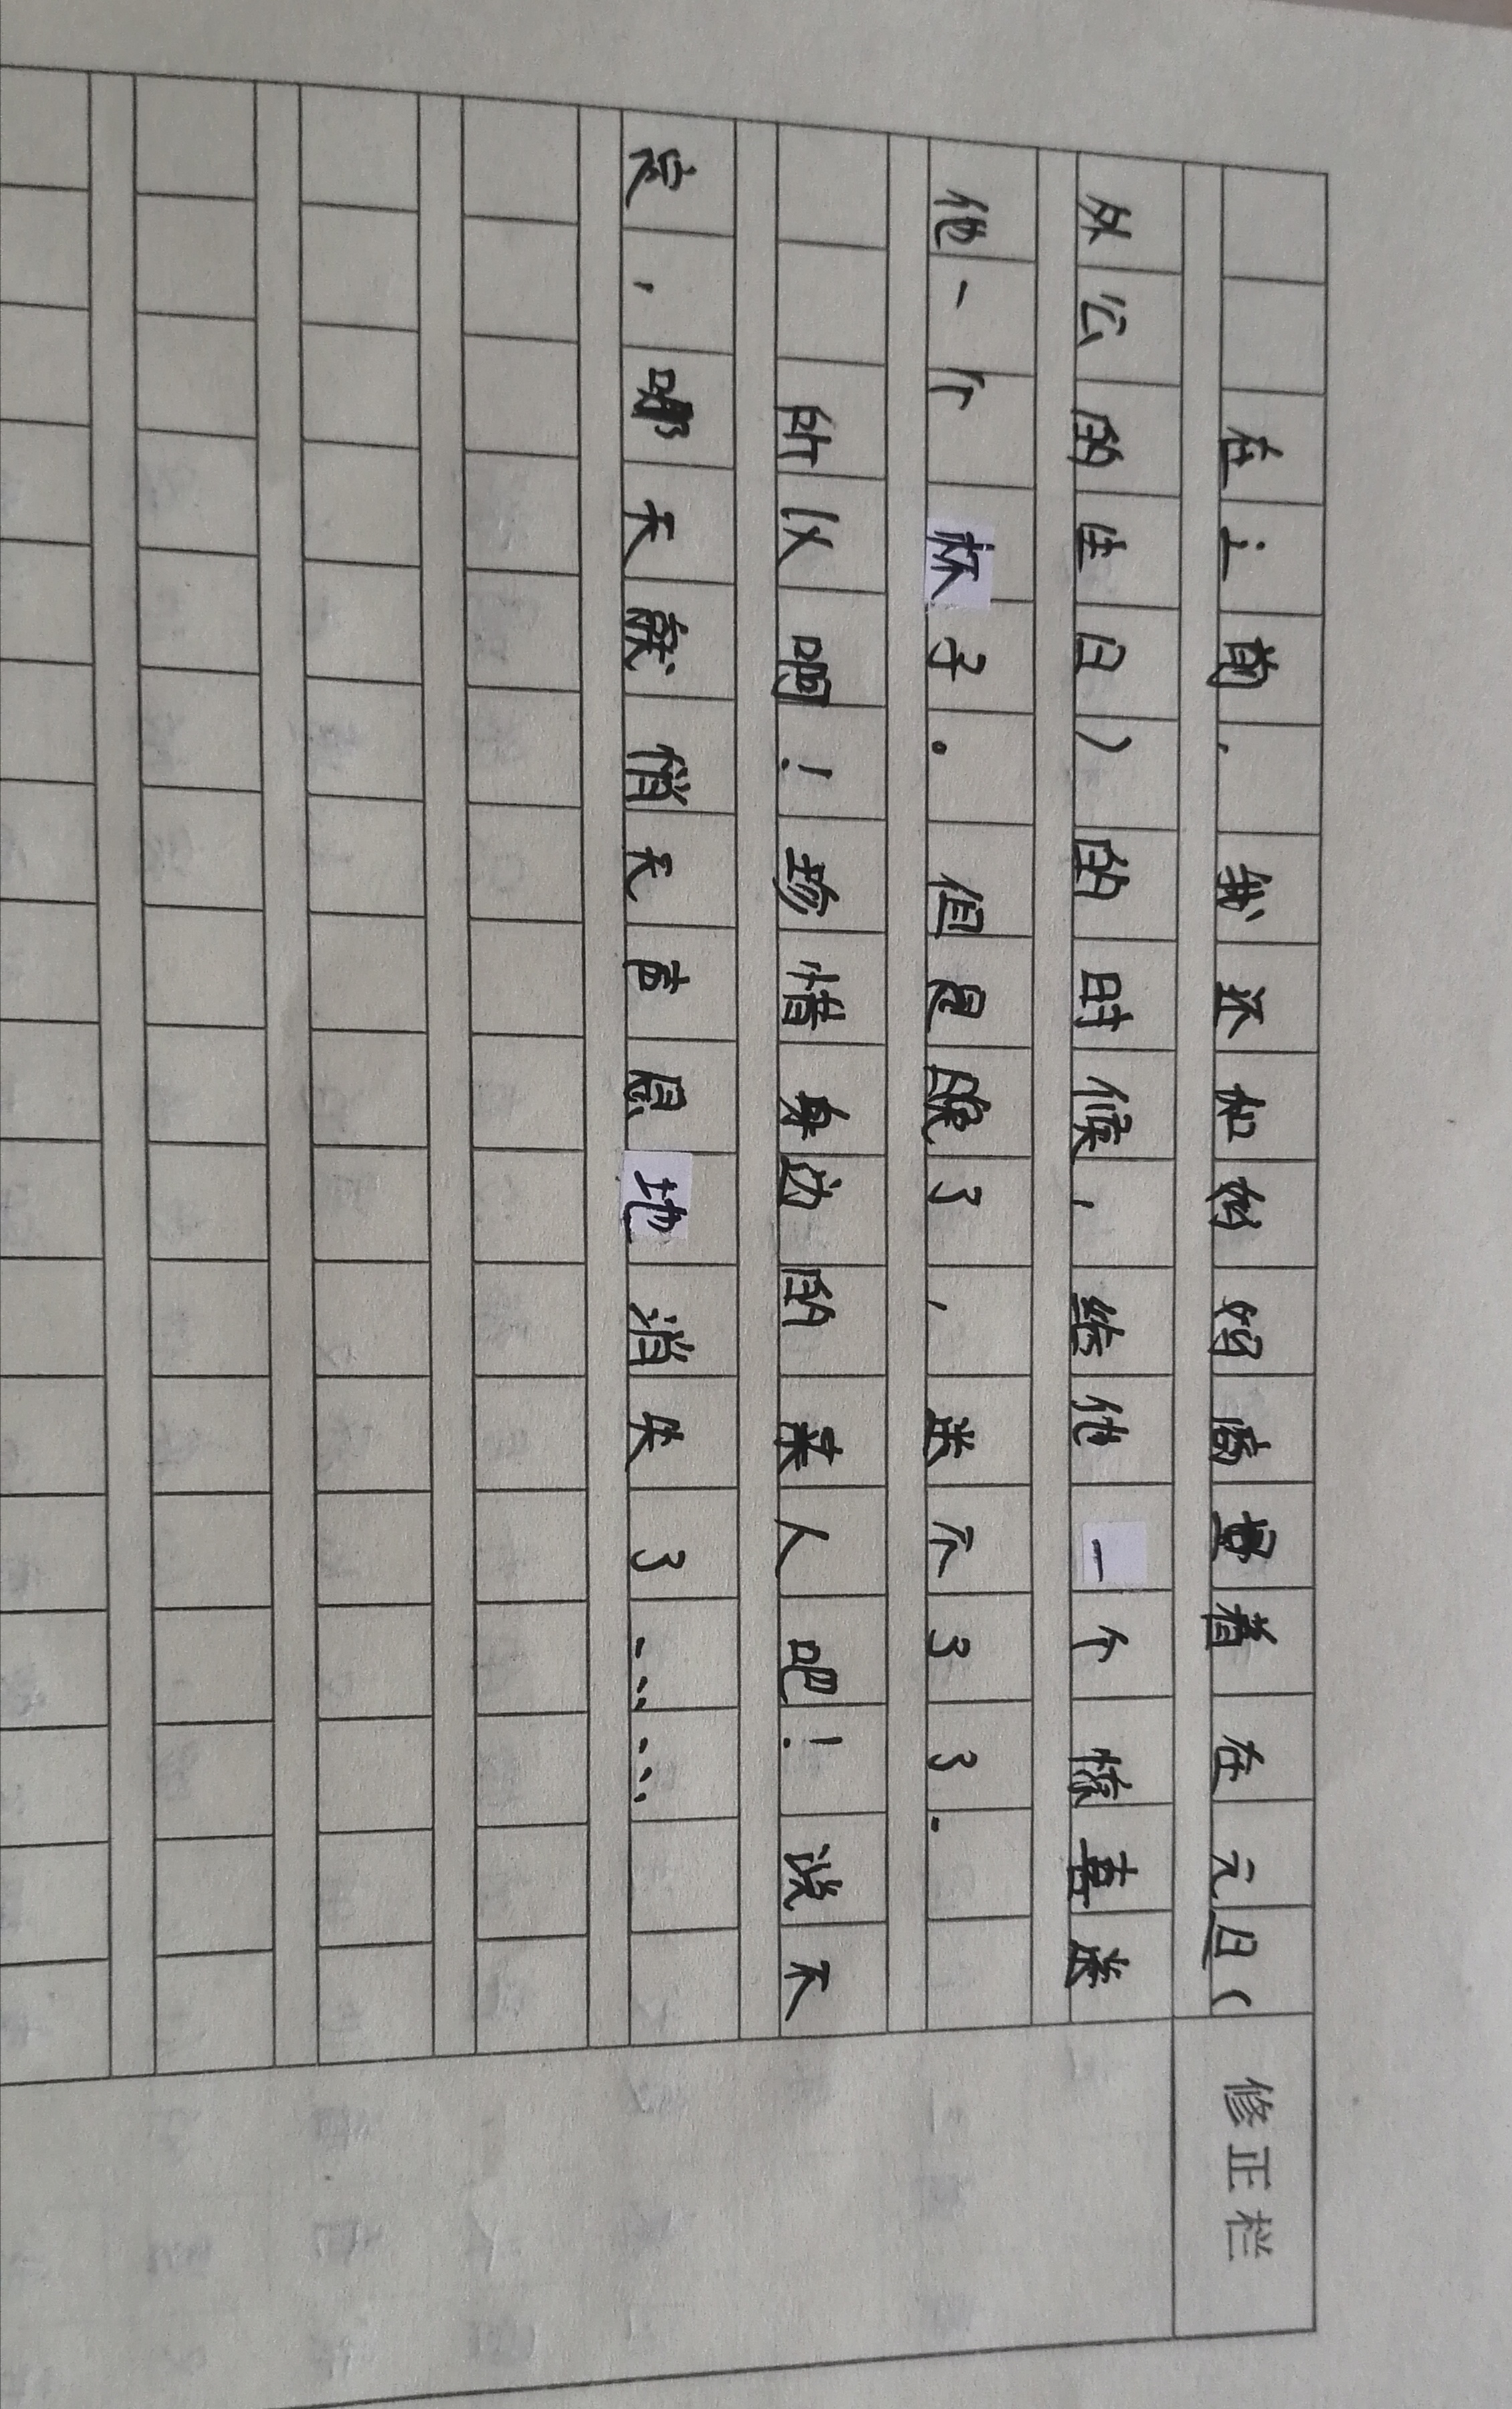 在之前,我还和妈妈商量着在元旦(
外公的生日)的时候,给他一个惊喜送
他一个杯子。但是晚了,送不了了.
所以啊!珍惜身边的亲人吧!说不
定,哪天就悄无声息地消失了……
修正栏